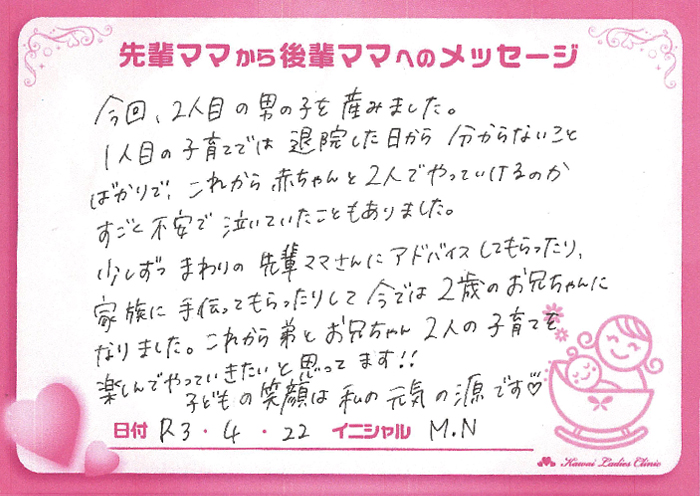 先輩ママから後輩ママへのメッセージ
今回、2人目の男の子を産みました。
1人目の子育てでは退院した日から分からないこと
ばかりで、これから赤ちゃんと2人でやっていけるのか
すごく不安で泣いていたこともありました。
少しずつまわりの先輩ママさんにアドバイスしてもらったり、
家族に手伝ってもらったりして今では2歳のお兄ちゃんに
なりました。これから弟とお兄ちゃん2人の子育てを
楽しんでやっていきたいと思ってます!!
子どもの笑顔は私の元気の源です♡
日付 R3・4・22 イニシャル M.N
Kawai Ladies Clinic